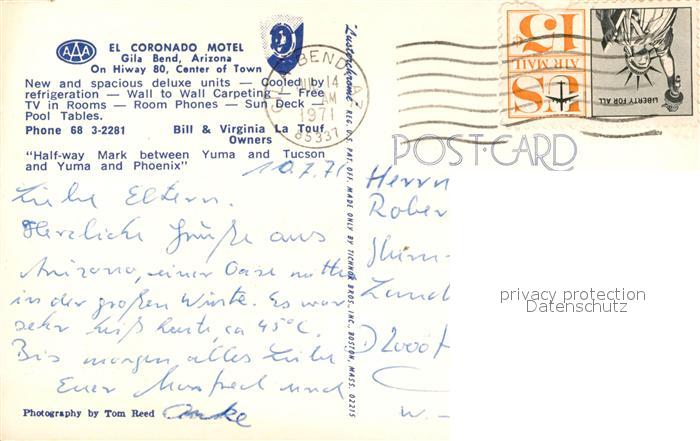 AAA EL CORONADO MOTEL
Gila Bend, Arizona
On Hiway 80, Center of Town
New and spacious deluxe units — Cooled by
refrigeration — Wall to Wall Carpeting — Free
TV in Rooms — Room Phones — Sun Deck —
Pool Tables.
Phone 68 3-2281 Bill & Virginia La Touf
Owners
"Half-way Mark between Yuma and Tucson
and Yuma and Phoenix"
10.7.71
Liebe Eltern.
Herzliche Grüße aus
Arizona, einer Oase mitten
in der großen Wüste. Es war
sehr heiß heute, ca 45°C.
Bis morgen alles Liebe
Euer Manfred und
Anke
Photography by Tom Reed
"Lusterchrome" REG. U.S. PAT. OFF. MADE ONLY BY TICHNOR BROS., INC., BOSTON, MASS. 02215
GILA BEND, AZ
14
AM
1971
85337
15
AIR MAIL
US
LIBERTY FOR ALL
POST CARD
Herrn
Rober
Land
D 2000 H
W. -
privacy protection
Datenschutz